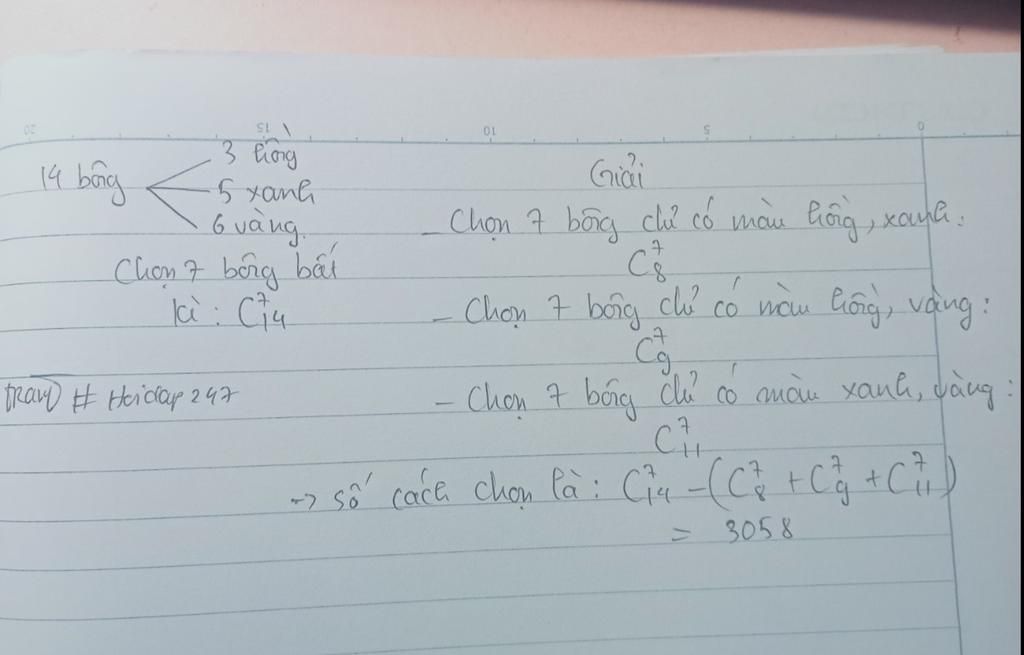 14 bông
3 hồng
5 xanh
6 vàng.
Chọn 7 bông bất
kì : C₁₄⁷
Giải
- Chọn 7 bông chỉ có màu hồng, xanh:
C₈⁷
- Chọn 7 bông chỉ có màu hồng, vàng:
C₉⁷
- Chọn 7 bông chỉ có màu xanh, vàng:
C₁₁⁷
→ số cách chọn là: C₁₄⁷ - (C₈⁷ + C₉⁷ + C₁₁⁷)
= 3058
# Hoidap 247
20 15 10 5 0